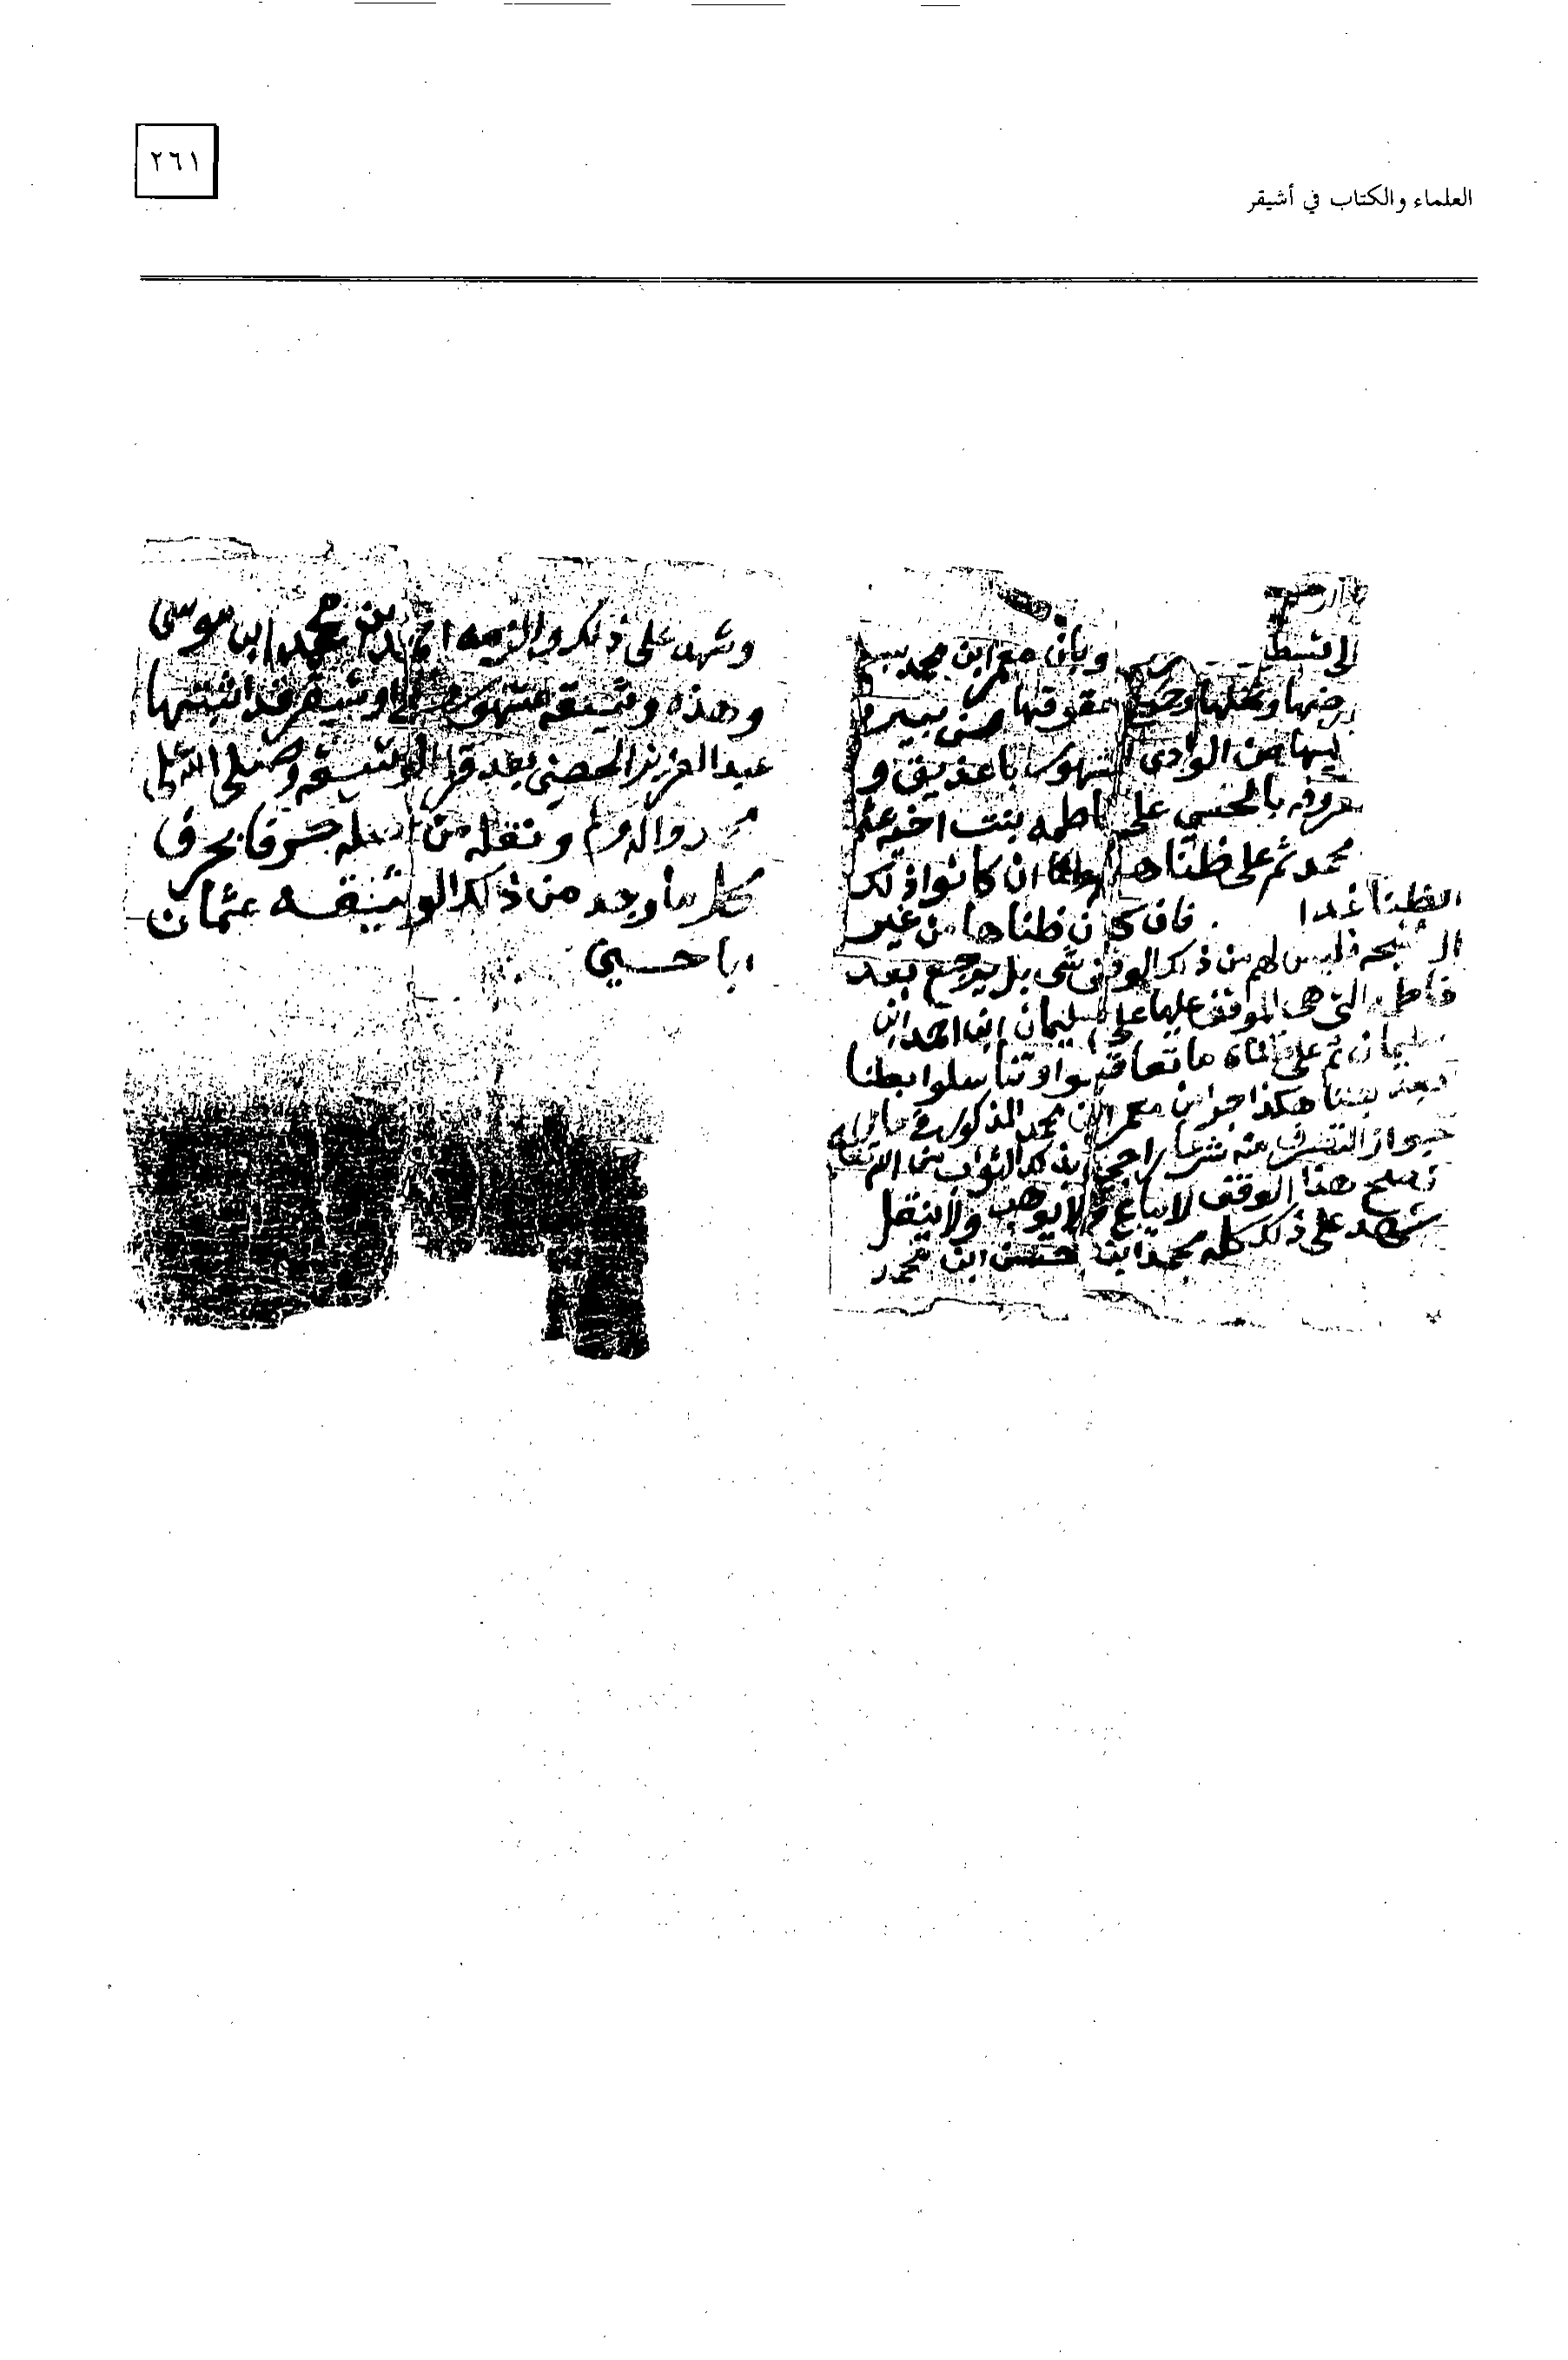 ٢٦١
العلماء والكتاب في أشيقر
الى تسط وبان معمر ابن محمد سبع
رضها ونخلها وجميع حقوقها من بيرة
ليها من الوادى المشهور باعذيق و
عروفه بالحسي على فاطمه بنت اخيه عثم
محمد ثم على ظناها ان كانوا ذلك
الظنا غدا فان كان ظناها من غير
فليس لهم من ذلك الوقف شى بل يرجع بعد
فاطمه التى هى الموقف عليها على سليمان ابن احمد ابن
سليمان ثم على ما تعاقبوا وتناسلوا بطنا
بعد بطنا هكذا جرا من معمر ابن محمد المذكور في ماله
جواز التصرف منه شرعا راجي بذلك الثواب من الله تعالى
هذا الوقف لا يباع ولا يوهب ولا ينقل
شهد على ذلك كله محمد ابن حسن ابن محمد
وشهد على ذلك والزمه احمد بن محمد ابن موسى
وهذه وثيقه مشهوره في اوشيقر قد اثبتها
عبد العزيز الحصيني بعد قرا الوثيقه وصلى الله على
محمد واله وسلم ونقله من اصله حرفا بحرف
كلما وجد من ذلك الوثيقه عثمان
ابا حسيني